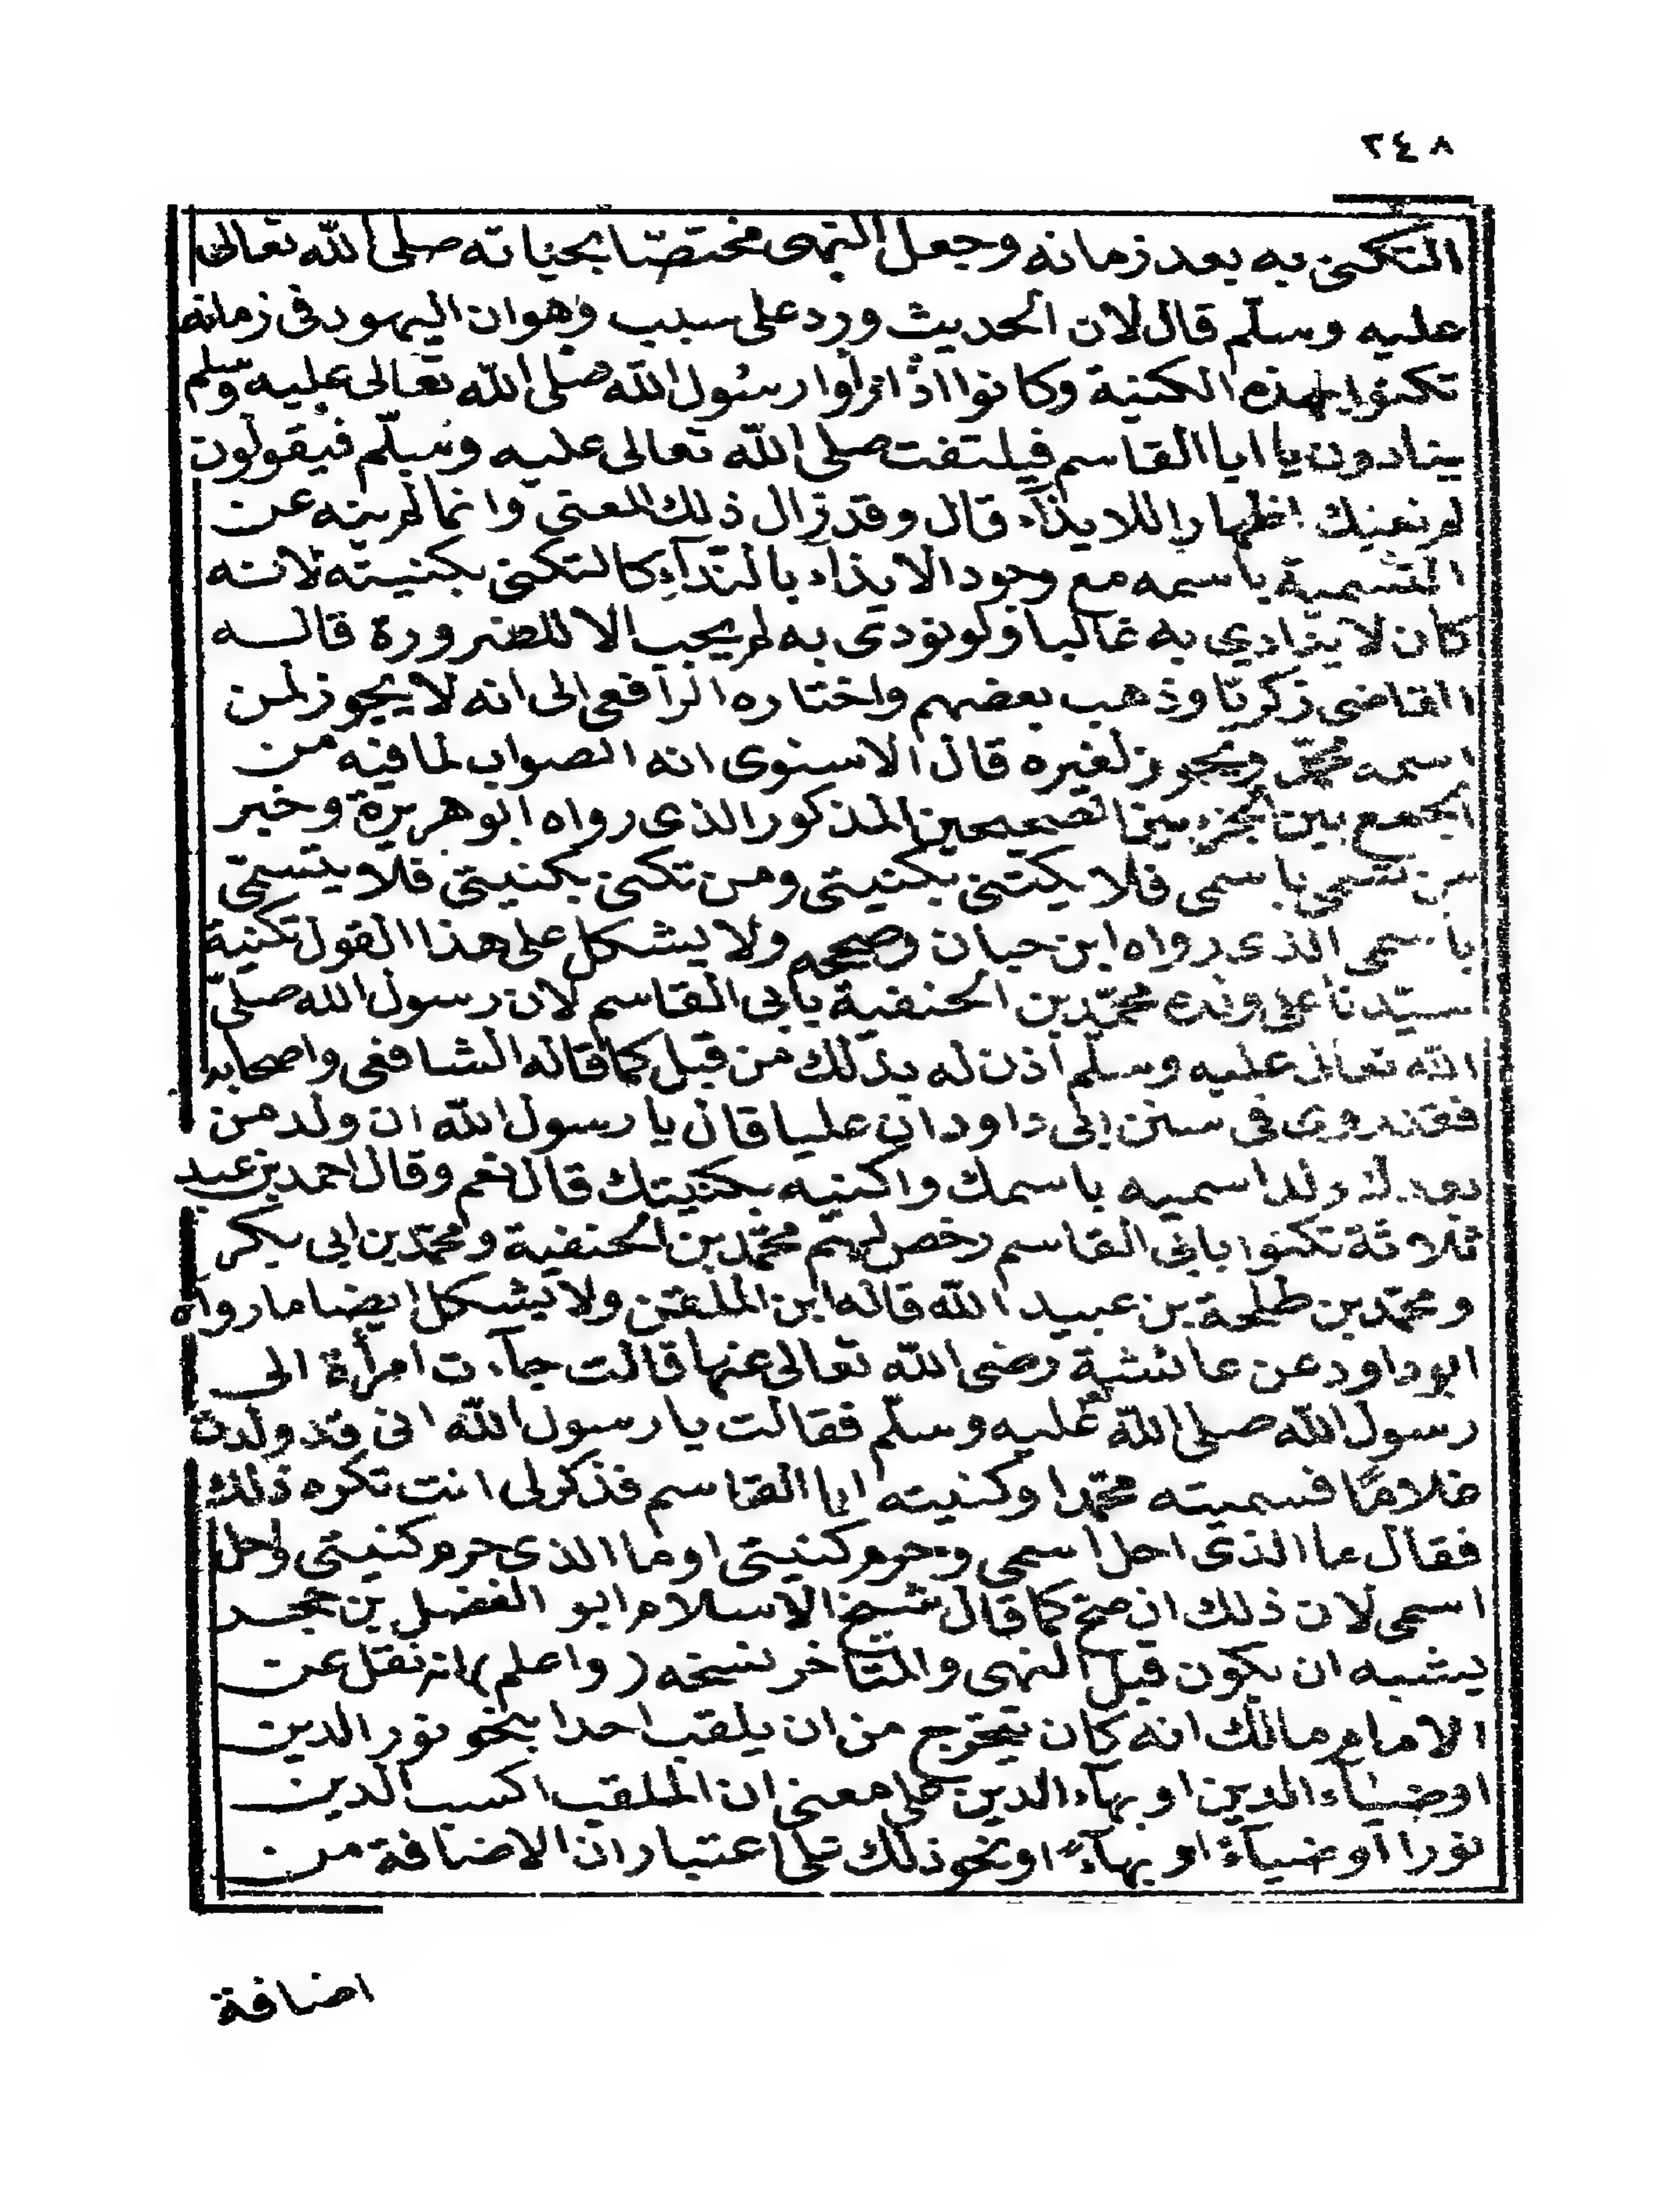 ٢٤٨
التكنى به بعد زمانه وجعل النهى مختصّا بحياته صلى الله تعالى
عليه وسلّم قال لان الحديث ورد على سبب وهوان اليهود فى زمانه
تكنوا بهذه الكنية وكانوا اذا راوا رسول الله صلى الله تعالى عليه وسلم
ينادون يا ابا القاسم فيلتفت صلى الله تعالى عليه وسلّم فيقولون
لم نعنيك اظهارا للايذآء قال وقد زال ذلك المعنى وانما لم ينه عن
التسمية باسمه مع وجود الايذآء بالندآء كالتكنى بكنيته لانه
كان لا ينادي به غالبا ولو نودى به لم يجب الا للضرورة قاله
القاضى زكريّا وذهب بعضهم واختاره الرافعى الى انه لا يجوز لمن
اسمه محمّد ويجوز لغيره قال الاسنوى انه الصواب لما فيه من
الجمع بين الخبر بين الصحيحين المذكور الذى رواه ابو هريرة وخبر
من تسمى باسمى فلا يكتنى بكنيتى ومن تكنى بكنيتى فلا يتسمّى
باسمى الذى رواه ابن حبان وصححه ولا يشكل على هذا القول تكنية
سيّدنا على ولده محمّد بن الحنفية بابى القاسم لان رسول الله صلىّ
الله تعالى عليه وسلّم اذن له بذلك من قبل كما قاله الشافعى واصحابه
فقد روى فى سنن ابى داود ان عليا قال يا رسول الله ان ولد من
بعدك ولد اسميه باسمك واكنيه بكنيتك قال نعم وقال احمد بن عبد
ثلاثة تكنوا بابى القاسم رخص لهم محمّد بن الحنفية ومحمّد بن ابى بكر
ومحمّد بن طلحة بن عبيد الله قاله ابن الملقن ولا يشكل ايضا ما رواه
ابو داود عن عائشة رضى الله تعالى عنها قالت جآءت امرأة الى
رسول الله صلى الله عليه وسلّم فقالت يا رسول الله انى قد ولدت
غلامًا فسميته محمّدا وكنيته ابا القاسم فذكر لى انت تكره ذلك
فقال ما الذى احل اسمى وحرم كنيتى او ما الذى حرم كنيتى واحل
اسمى لان ذلك ان صح كما قال شيخ الاسلام ابو الفضل بن حجر
يشبه ان يكون قبل النهى والمتأخر نسخه (واعلم) انه نقل عن
الامام مالك انه كان يتحرج من ان يلقب احدا بنحو نور الدين
او ضيآء الدين او بهآء الدين على معنى ان الملقب اكسب الدين
نورا او ضيآء او بهآء او نحو ذلك على اعتبار ان الاضافة من
اضافة